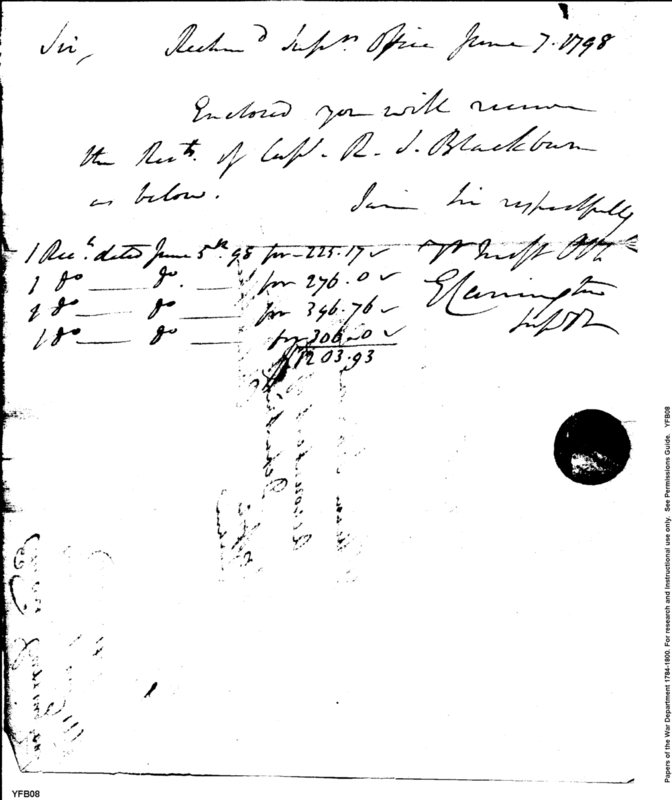 Sir, Richmd Suprs Office June 7. 1798
Enclosed you will receive
the Rects. of Capt. R. S. Blackburn
as below.
I am Sir respectfully
1 Rect. dated June 5th 98 for 225.17
1 do do for 276.0
1 do do for 396.76
1 do do for 306.0
1203.93
Yr Most Obt
E Carrington
Papers of the War Department 1784-1800. For research and Instructional use only. See Permissions Guide. YFB08
YFB08